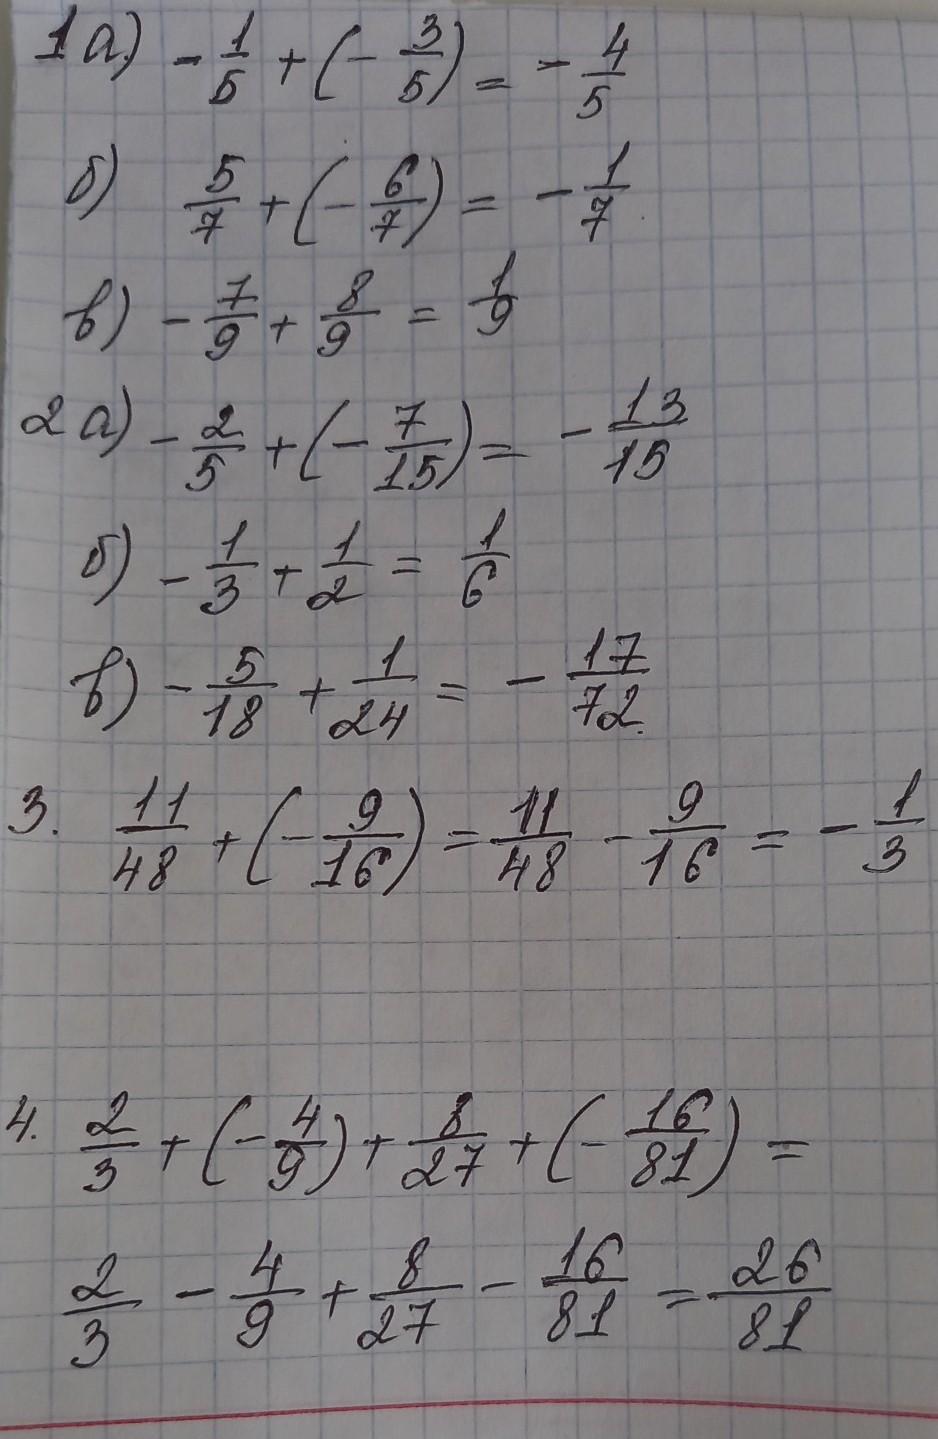 1а) -1/5 + (-3/5) = -4/5
б) 5/7 + (-6/7) = -1/7
в) -7/9 + 8/9 = 1/9
2а) -2/5 + (-7/15) = -13/15
б) -1/3 + 1/2 = 1/6
в) -5/18 + 1/24 = -17/72.
3. 11/48 + (-9/16) = 11/48 - 9/16 = -1/3
4. 2/3 + (-4/9) + 8/27 + (-16/81) =
2/3 - 4/9 + 8/27 - 16/81 = 26/81